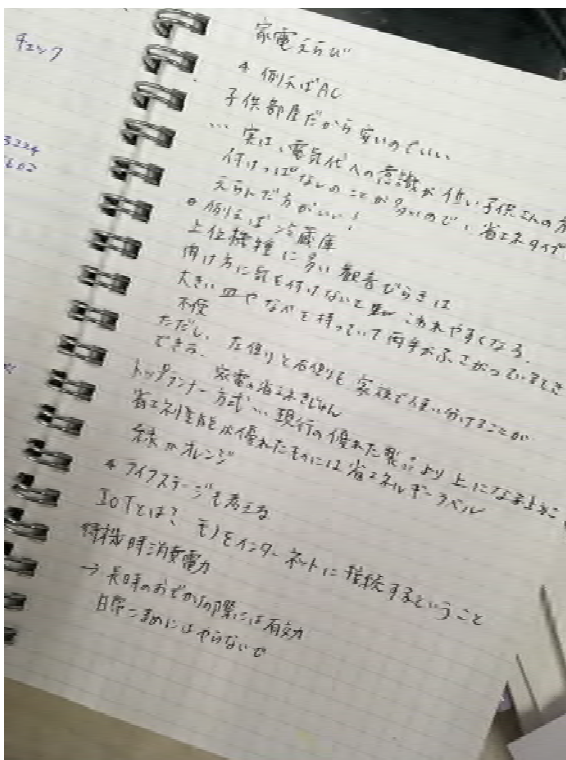 チェック
3224
602
家電えらび
* 例えばAC
子供部屋だから安いのでいい
… 実は、電気代への意識が低い子供さんの方
付けっぱなしのことが多いので、省エネタイプ
えらんだ方がいい!
例えば冷蔵庫
上位機種に多い観音びらきは
向け方に気を付けないと こわれやすくなる。
大きい皿やなべを持っていて両手がふさがっているとき
不便
ただし、左使りと右使りを家族で使い分けることが
できる。
家電の省エネきじゅん
トップランナー方式…現行の優れた製品より上になるように
省エネ性能が優れたものには省エネルギーラベル
緑かオレンジ
* ライフステージも考える
IoTとは? モノをインターネットに接続するということ
待機時消費電力
→ 長時のおでかけの際には有効
日常こまめにはやらないで